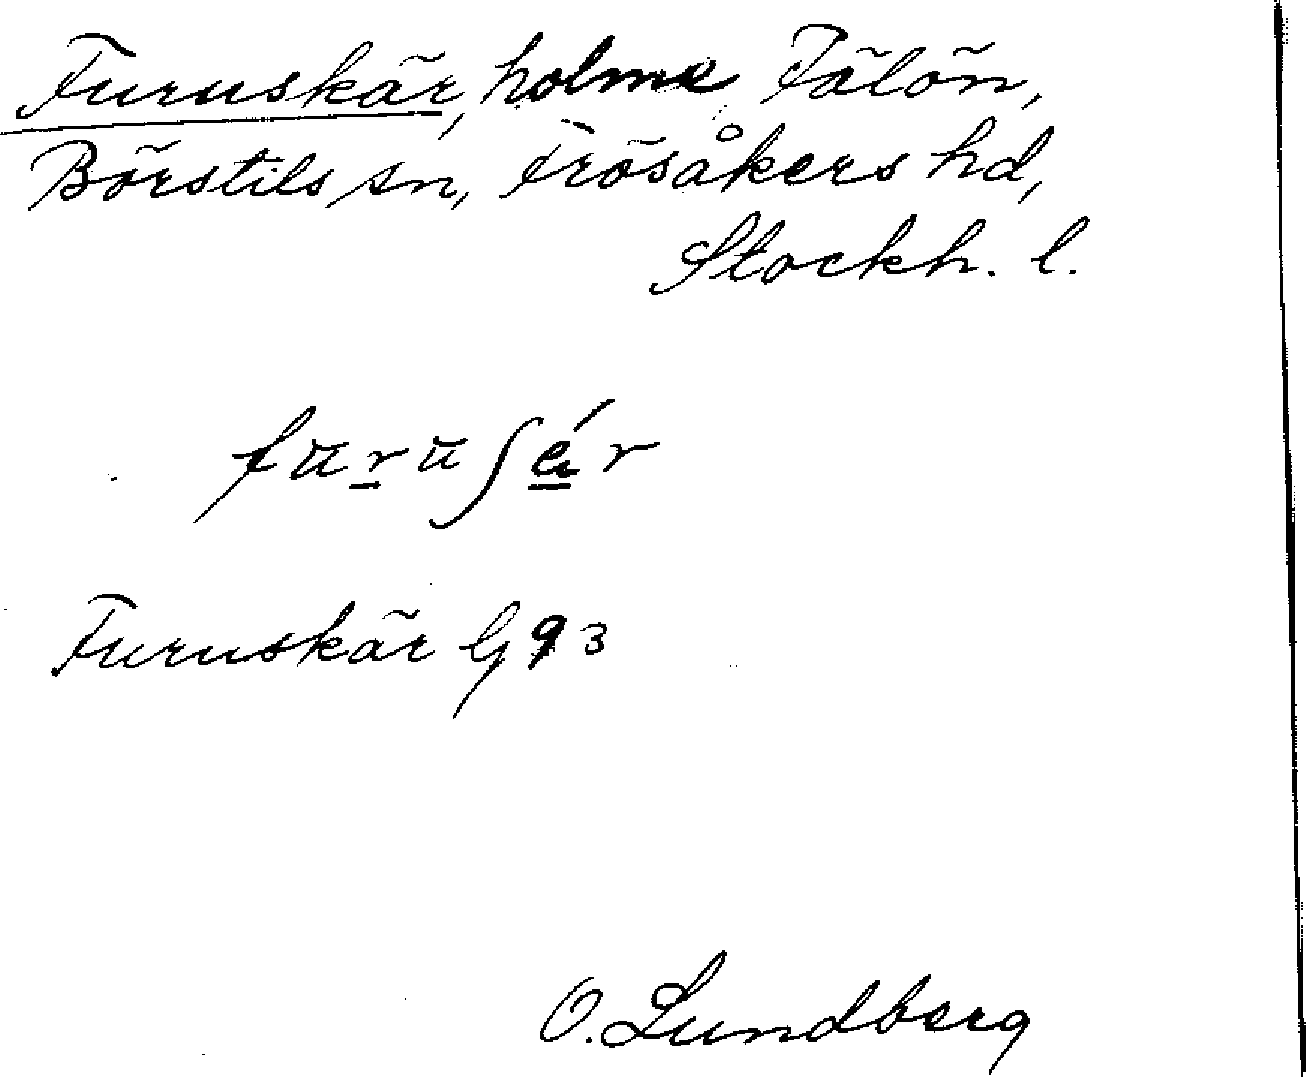 Furuskär, holme Fälön,
Börstils sn, Frösåkers hd,
Stockh. l.
Furuskär G 93
O. Lundberg